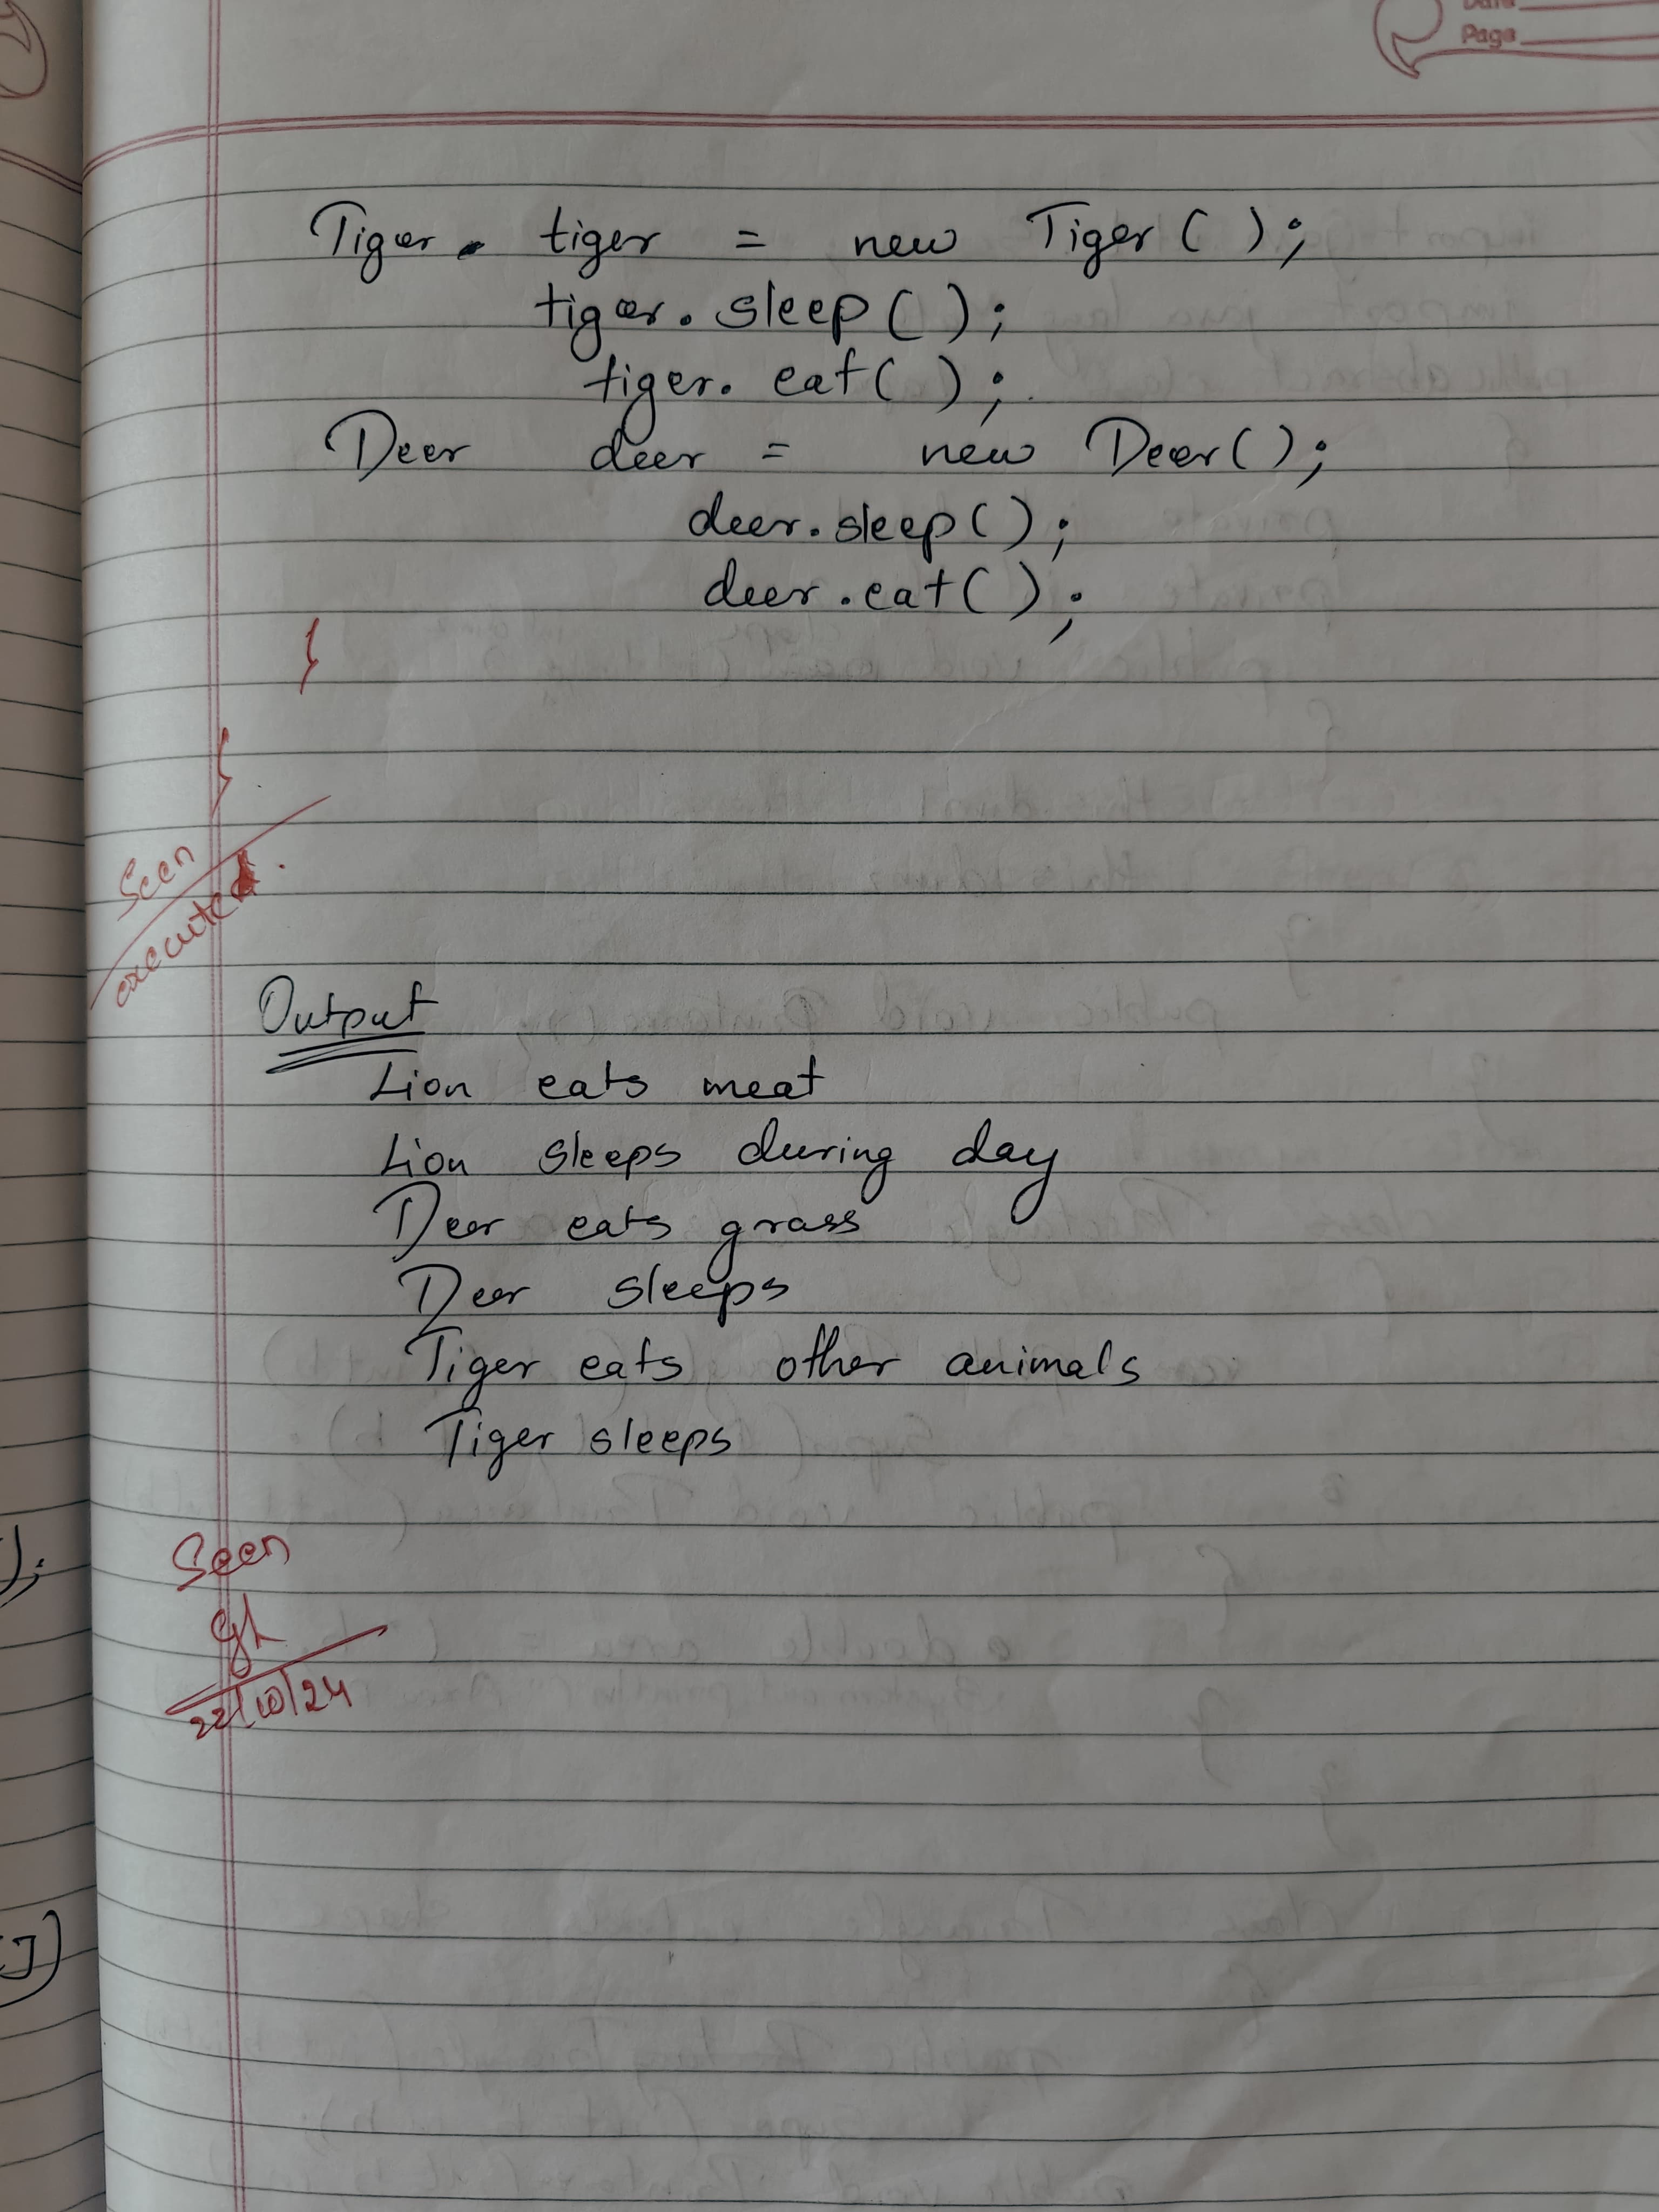 Date
Page
Tiger. tiger = new Tiger( );
tiger.sleep( );
tiger. eat( );
Deer deer = new Deer( );
deer.sleep( );
deer.eat( );
}
}
Seen
executed.
Output
Lion eats meat
Lion sleeps during day
Deer eats grass
Deer sleeps
Tiger eats other animals
Tiger sleeps
);
Seen
22/10/24